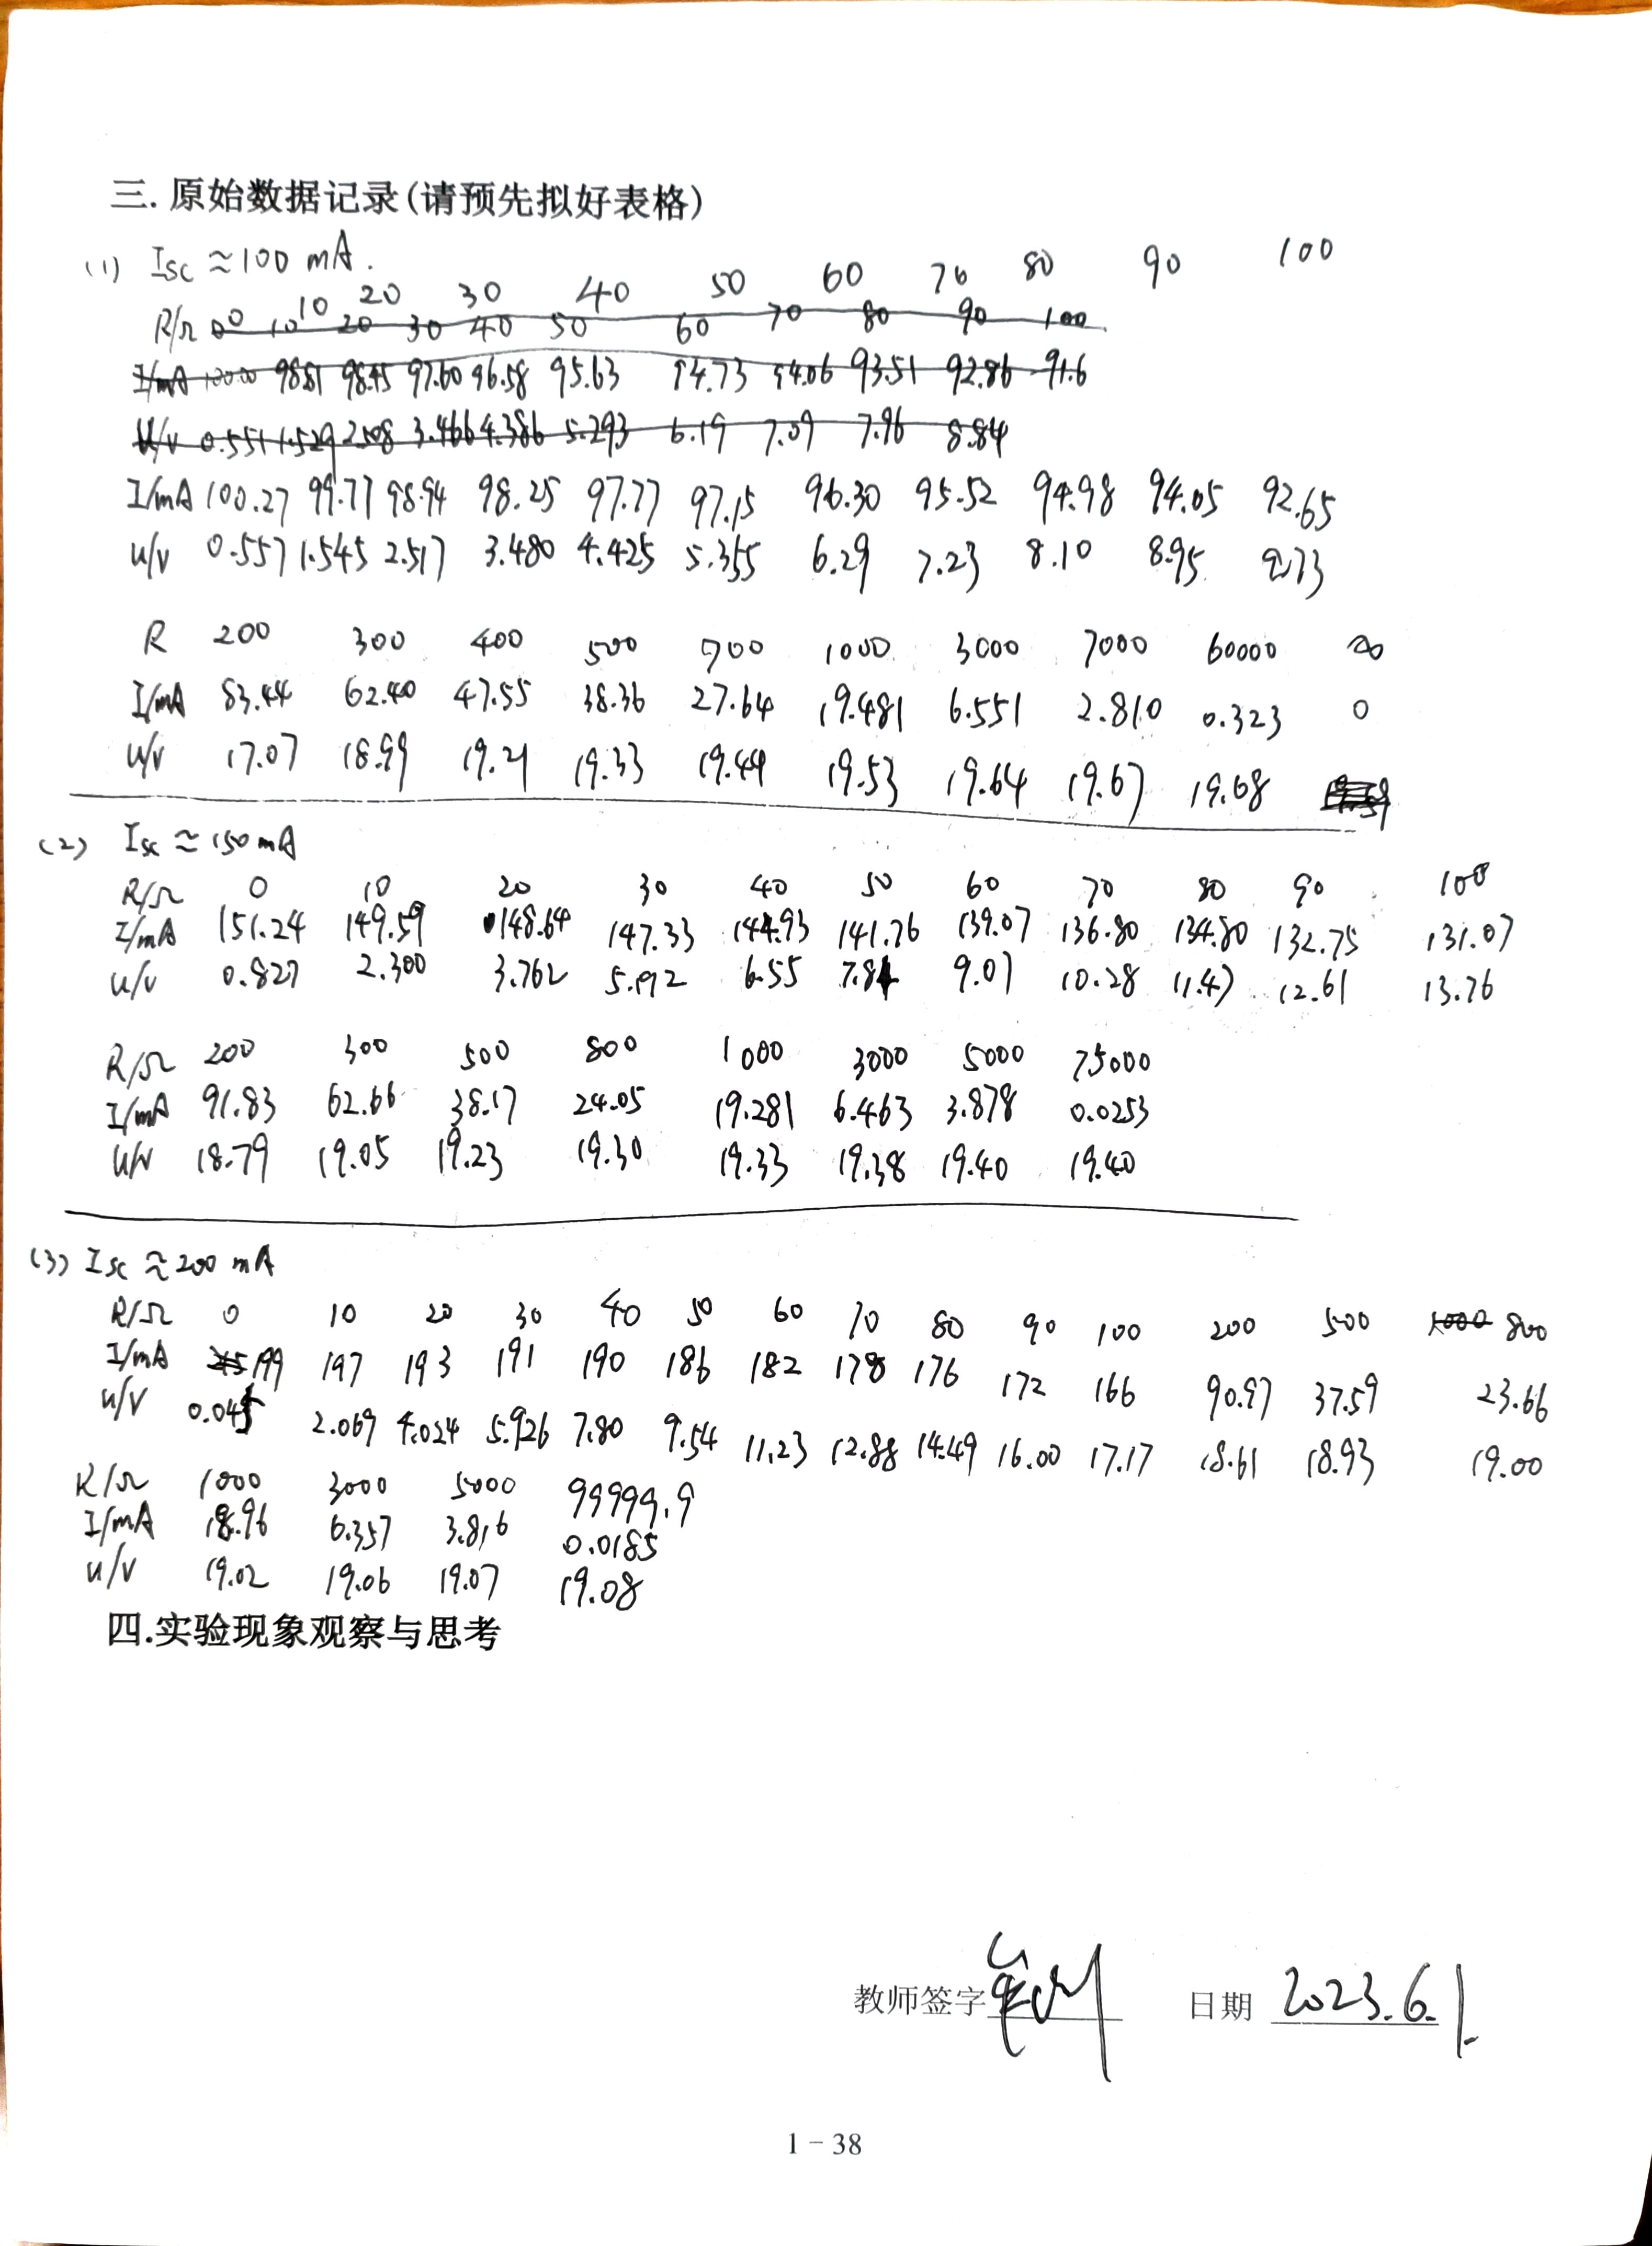 三.原始数据记录(请预先拟好表格)
(1) Isc ≈100 mA.
10 20 30 40 50 60 70 80 90 100
R/Ω 0 10 20 30 40 50 60 70 80 90 100
I/mA 100.00 98.81 98.45 97.60 96.58 95.63 94.73 94.06 93.51 92.86 91.6
U/V 0.551 1.529 2.508 3.466 4.386 5.293 6.19 7.09 7.96 8.84
I/mA 100.27 99.77 98.94 98.25 97.77 97.15 96.30 95.52 94.98 94.05 92.65
U/V 0.557 1.545 2.517 3.480 4.425 5.355 6.29 7.23 8.10 8.95 9.73
R 200 300 400 500 700 1000 3000 7000 60000 ∞
I/mA 83.44 62.40 47.55 38.36 27.64 19.481 6.551 2.810 0.323 0
U/V 17.07 18.99 19.21 19.33 19.44 19.53 19.64 19.67 19.68
(2) Isc ≈150mA
R/Ω 0 10 20 30 40 50 60 70 80 90 100
I/mA 151.24 149.59 148.64 147.33 144.93 141.76 139.07 136.80 134.80 132.75 131.07
U/V 0.827 2.300 3.762 5.192 6.55 7.84 9.07 10.28 11.47 12.61 13.76
R/Ω 200 300 500 800 1000 3000 5000 75000
I/mA 91.83 62.66 38.17 24.05 19.281 6.463 3.878 0.0253
U/V 18.79 19.05 19.23 19.30 19.33 19.38 19.40 19.40
(3) Isc ≈200 mA
R/Ω 0 10 20 30 40 50 60 70 80 90 100 200 500 1000 800
I/mA 199 197 193 191 190 186 182 178 176 172 166 90.97 37.59 23.66
U/V 0.045 2.069 4.024 5.926 7.80 9.54 11.23 12.88 14.49 16.00 17.17 18.61 18.93 19.00
R/Ω 1000 3000 5000 99999.9
I/mA 18.96 6.357 3.816 0.0185
U/V 19.02 19.06 19.07 19.08
四.实验现象观察与思考
教师签字 日期 2023.6.1.
1-38